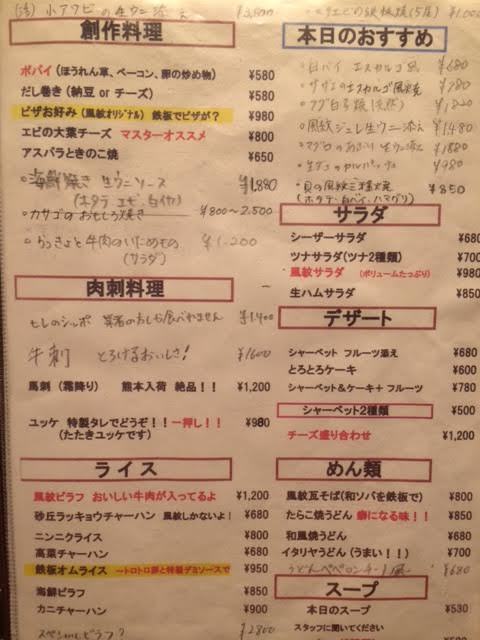 小アワビの生ウニ添え ¥2,800
創作料理
ポパイ (ほうれん草、ベーコン、卵の炒め物) ¥580
だし巻き (納豆 or チーズ) ¥580
ピザお好み (風紋オリジナル) 鉄板でピザが? ¥980
エビの大葉チーズ マスターオススメ ¥800
アスパラときのこ焼 ¥650
海鮮焼き 生ウニソース ¥1,880
(ホタテ エビ 白イカ)
カサゴのおもしろ焼き ¥800〜2,500
らっきょと牛肉のいためもの ¥1,200
(サラダ)
肉刺料理
¥1,400
牛刺 とろけるおいしさ! ¥1600
馬刺 (霜降り) 熊本入荷 絶品!! ¥1,200
ユッケ 特製タレでどうぞ!!一押し!! ¥980
(たたきユッケです)
ライス
風紋ピラフ おいしい牛肉が入ってるよ ¥1,200
砂丘ラッキョウチャーハン 風紋しかないよ! ¥680
ニンニクライス ¥680
高菜チャーハン ¥680
鉄板オムライス −トロトロ卵と特製デミソースで ¥950
海鮮ピラフ ¥850
カニチャーハン ¥900
スペシャルピラフ? ¥2800
¥1,000
本日のおすすめ
白バイ エスカルゴ風 ¥680
サザエのエスカルゴ風焼 ¥780
風紋ジュレ生ウニ添え ¥1,480
¥1880
¥980
貝の風紋三種焼 ¥850
(ホタテ・白バイ・ハマグリ)
サラダ
シーザーサラダ ¥680
ツナサラダ(ツナ2種類) ¥700
風紋サラダ (ボリュームたっぷり) ¥980
生ハムサラダ ¥850
デザート
シャーベット フルーツ添え ¥680
とろとろケーキ ¥600
シャーベット&ケーキ+ フルーツ ¥780
シャーベット2種類 ¥500
チーズ盛り合わせ ¥1,200
めん類
風紋瓦そば(和ソバを鉄板で) ¥800
たらこ焼うどん 癖になる味!! ¥850
和風焼うどん ¥680
イタリヤうどん (うまい!!) ¥700
うどんペペロンチーノ風 ¥680
スープ
本日のスープ ¥530
スタッフに聞いてください